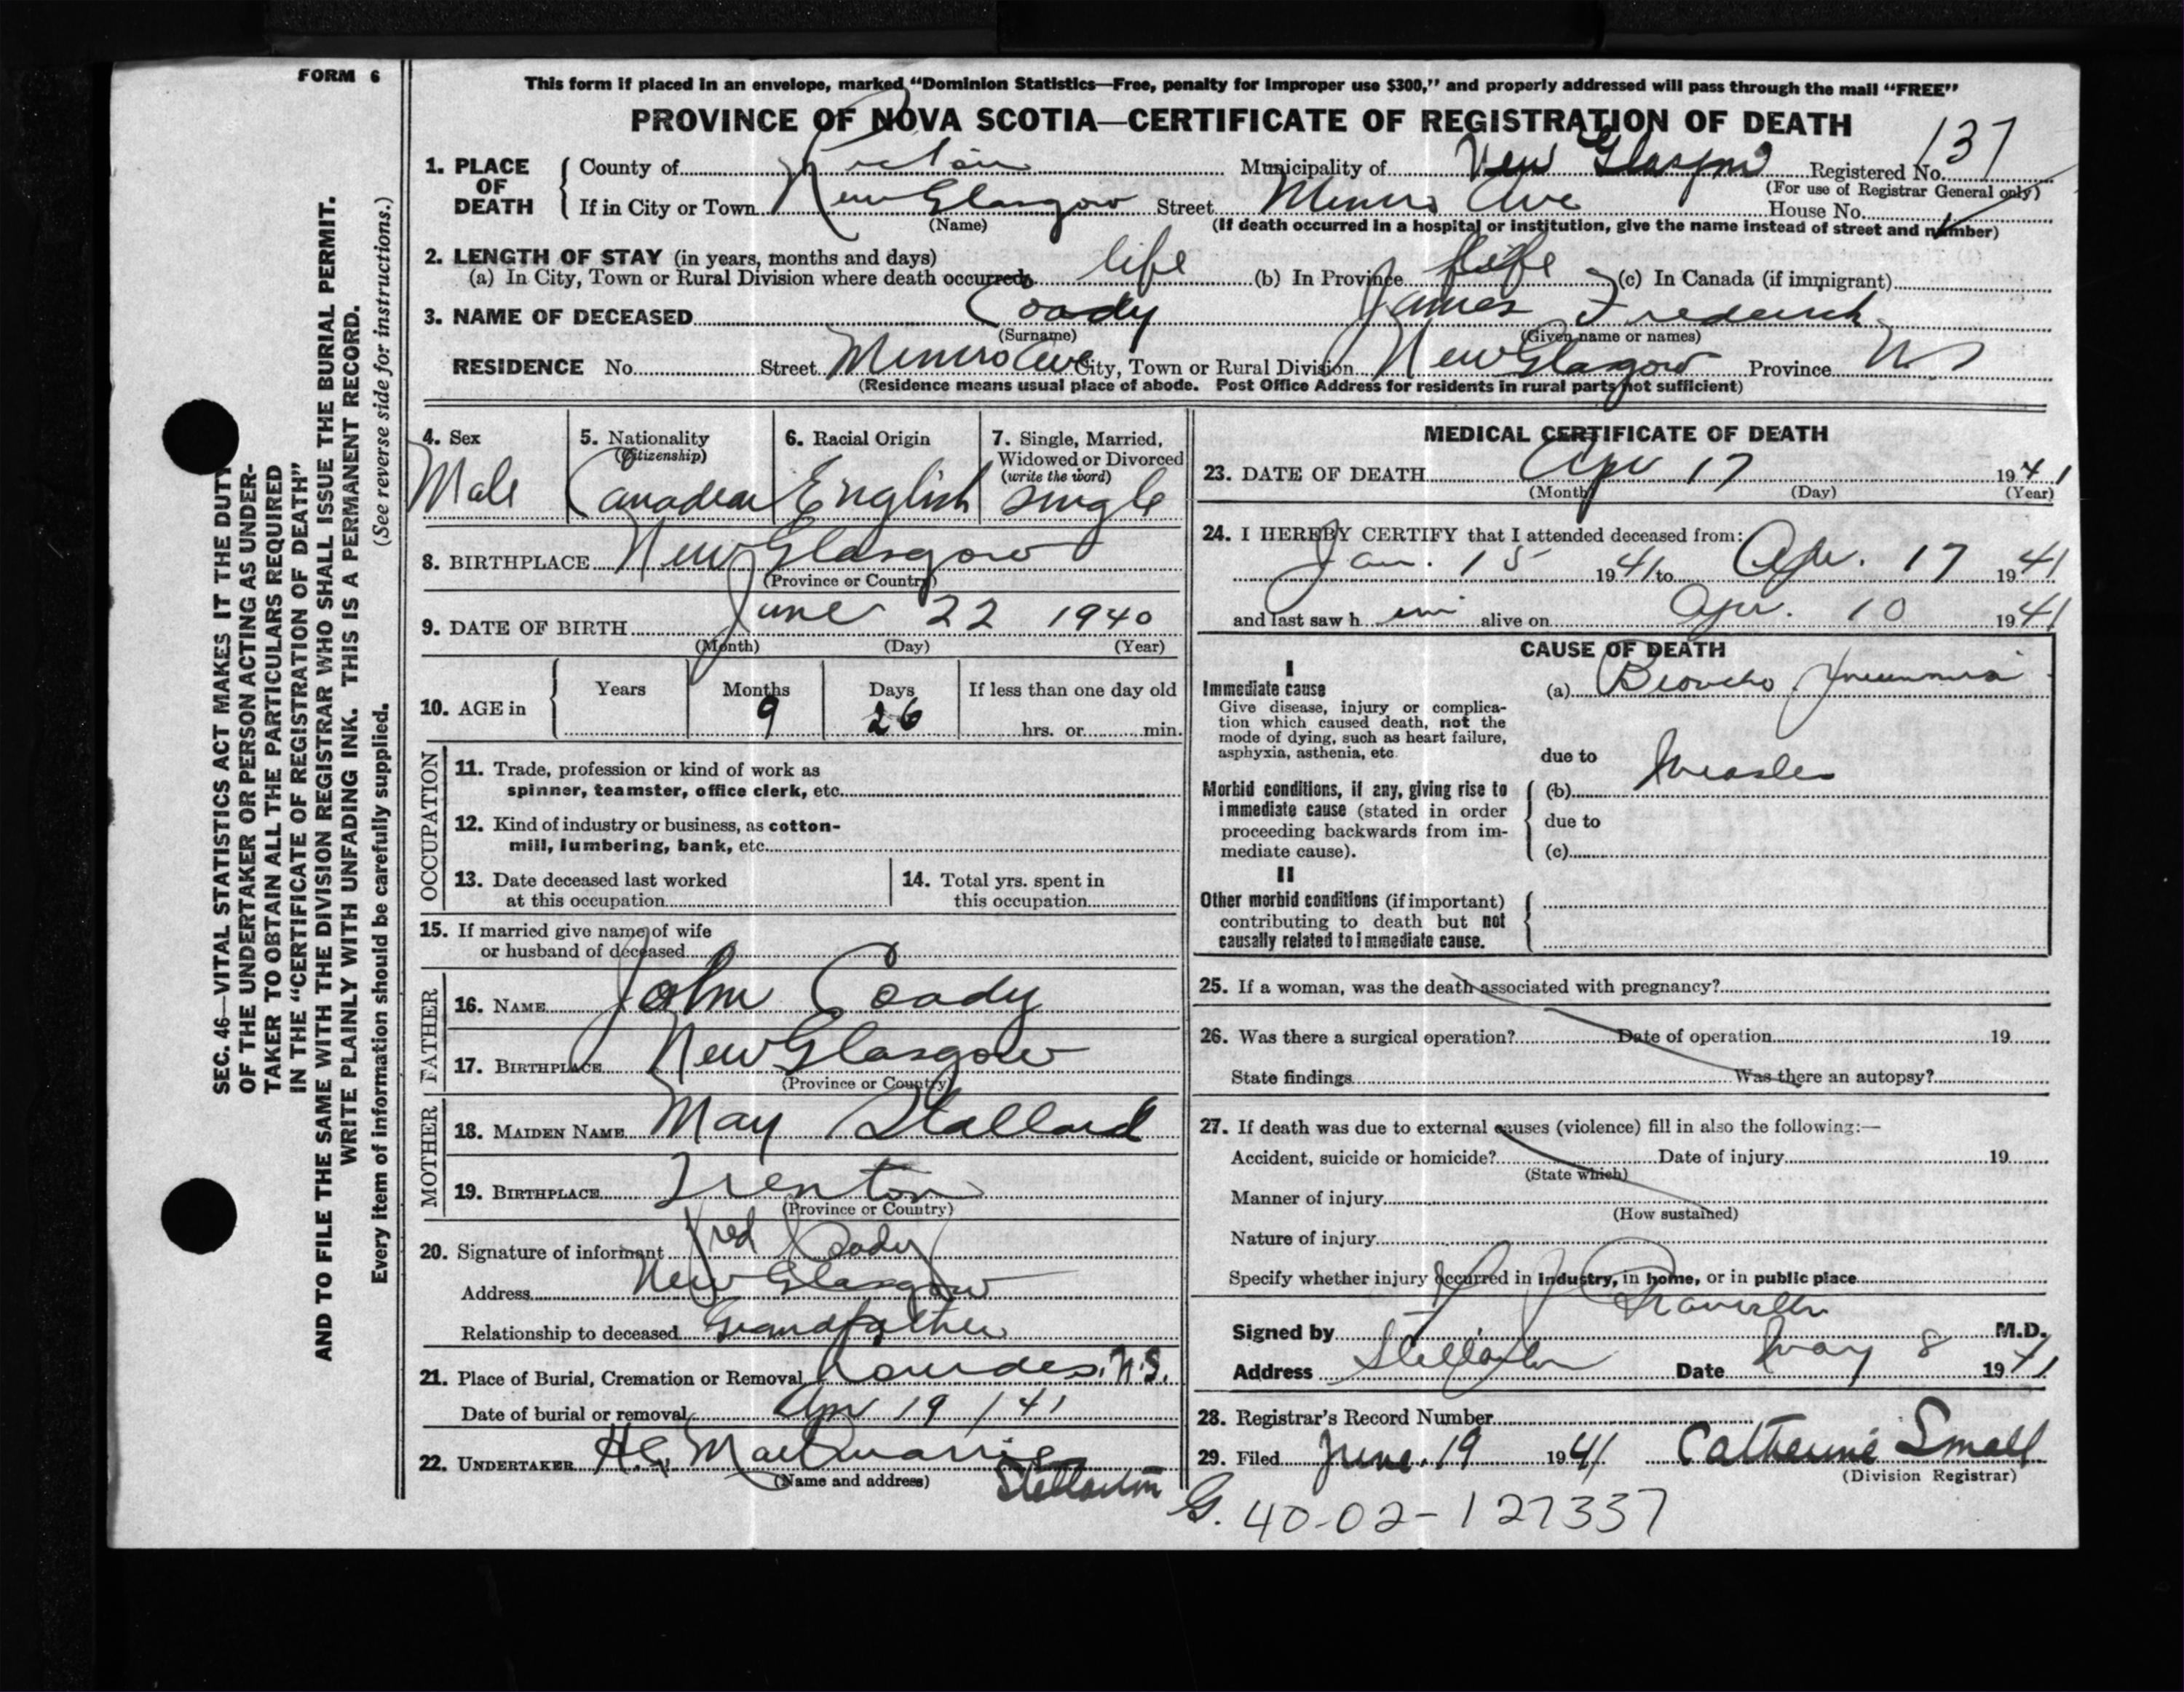 FORM 6
This form if placed in an envelope, marked "Dominion Statistics—Free, penalty for improper use $300," and properly addressed will pass through the mail "FREE"
PROVINCE OF NOVA SCOTIA—CERTIFICATE OF REGISTRATION OF DEATH
1. PLACE OF DEATH County of Pictou Municipality of New Glasgow Registered No. 137
(For use of Registrar General only)
If in City or Town New Glasgow Street Munro Ave House No.
(Name) (If death occurred in a hospital or institution, give the name instead of street and number)
2. LENGTH OF STAY (in years, months and days)
(a) In City, Town or Rural Division where death occurred life (b) In Province life (c) In Canada (if immigrant)
3. NAME OF DECEASED Coady James Frederick
(Surname) (Given name or names)
RESIDENCE No. Street Munro Ave City, Town or Rural Division New Glasgow Province NS
(Residence means usual place of abode. Post Office Address for residents in rural parts not sufficient)
4. Sex Male
5. Nationality (Citizenship) Canadian
6. Racial Origin English
7. Single, Married, Widowed or Divorced (write the word) single
8. BIRTHPLACE New Glasgow
(Province or Country)
9. DATE OF BIRTH June 22 1940
(Month) (Day) (Year)
10. AGE in Years Months 9 Days 26 If less than one day old hrs. or min.
OCCUPATION
11. Trade, profession or kind of work as spinner, teamster, office clerk, etc.
12. Kind of industry or business, as cotton-mill, lumbering, bank, etc.
13. Date deceased last worked at this occupation
14. Total yrs. spent in this occupation
15. If married give name of wife or husband of deceased
FATHER
16. NAME John Coady
17. BIRTHPLACE New Glasgow
(Province or Country)
MOTHER
18. MAIDEN NAME May Stallard
19. BIRTHPLACE Trenton
(Province or Country)
20. Signature of informant Fred Coady
Address New Glasgow
Relationship to deceased Grandfather
21. Place of Burial, Cremation or Removal Lourdes. N.S.
Date of burial or removal Apr 19 / 41
22. UNDERTAKER H.G. MacQuarrie
(Name and address) Stellarton
MEDICAL CERTIFICATE OF DEATH
23. DATE OF DEATH Apr 17 1941
(Month) (Day) (Year)
24. I HEREBY CERTIFY that I attended deceased from:
Jan. 15 1941 to Apr. 17 1941
and last saw h im alive on Apr. 10 1941
CAUSE OF DEATH
I
Immediate cause
Give disease, injury or complication which caused death, not the mode of dying, such as heart failure, asphyxia, asthenia, etc.
(a) Broncho Pneumonia
due to
Morbid conditions, if any, giving rise to immediate cause (stated in order proceeding backwards from immediate cause).
(b) Measles
due to
(c)
II
Other morbid conditions (if important) contributing to death but not causally related to immediate cause.
25. If a woman, was the death associated with pregnancy?
26. Was there a surgical operation? Date of operation 19
State findings Was there an autopsy?
27. If death was due to external causes (violence) fill in also the following:—
Accident, suicide or homicide? Date of injury 19
(State which)
Manner of injury
(How sustained)
Nature of injury
Specify whether injury occurred in industry, in home, or in public place
Signed by M.D.
Address Stellarton Date May 8 1941
28. Registrar's Record Number
29. Filed June. 19 1941 Catherine Small
(Division Registrar)
G. 40-02-127337
SEC. 46—VITAL STATISTICS ACT MAKES IT THE DUTY
OF THE UNDERTAKER OR PERSON ACTING AS UNDER-
TAKER TO OBTAIN ALL THE PARTICULARS REQUIRED
IN THE "CERTIFICATE OF REGISTRATION OF DEATH"
AND TO FILE THE SAME WITH THE DIVISION REGISTRAR WHO SHALL ISSUE THE BURIAL PERMIT.
WRITE PLAINLY WITH UNFADING INK. THIS IS A PERMANENT RECORD.
Every item of information should be carefully supplied. (See reverse side for instructions.)